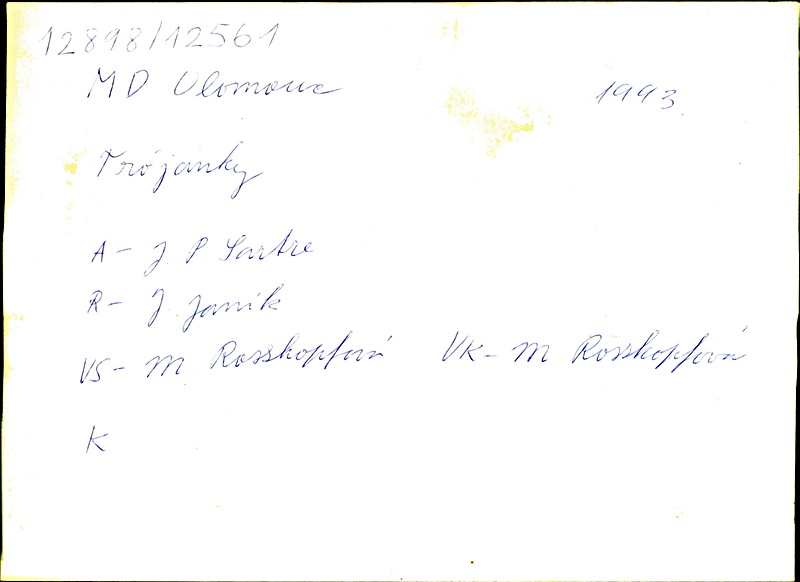 12898/12561
MD Olomouc
1993
Trójanky
A - J P Sartre
R - J. Janík
VS - M Rosskopfová VK - M Rosskopfová
K